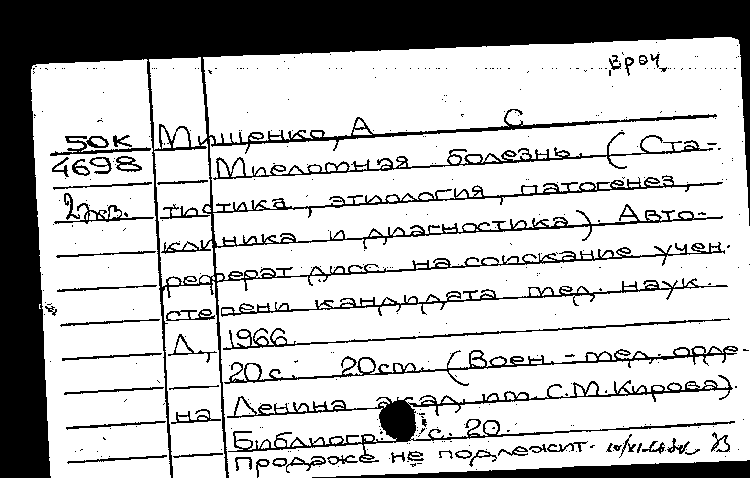 врач
50К Мищенко, А С
4698 Миелотная болезнь. (Ста-
2 экз. тистика, этиология, патогенез,
клиника и диагностика). Авто-
реферат дисс. на соискание учен.
степени кандидата мед. наук.
Л., 1966.
20 с. 20 см. (Воен.-мед. орде-
на Ленина акад. им. С.М.Кирова).
Библиогр. с. 20.
Продаже не подлежит.